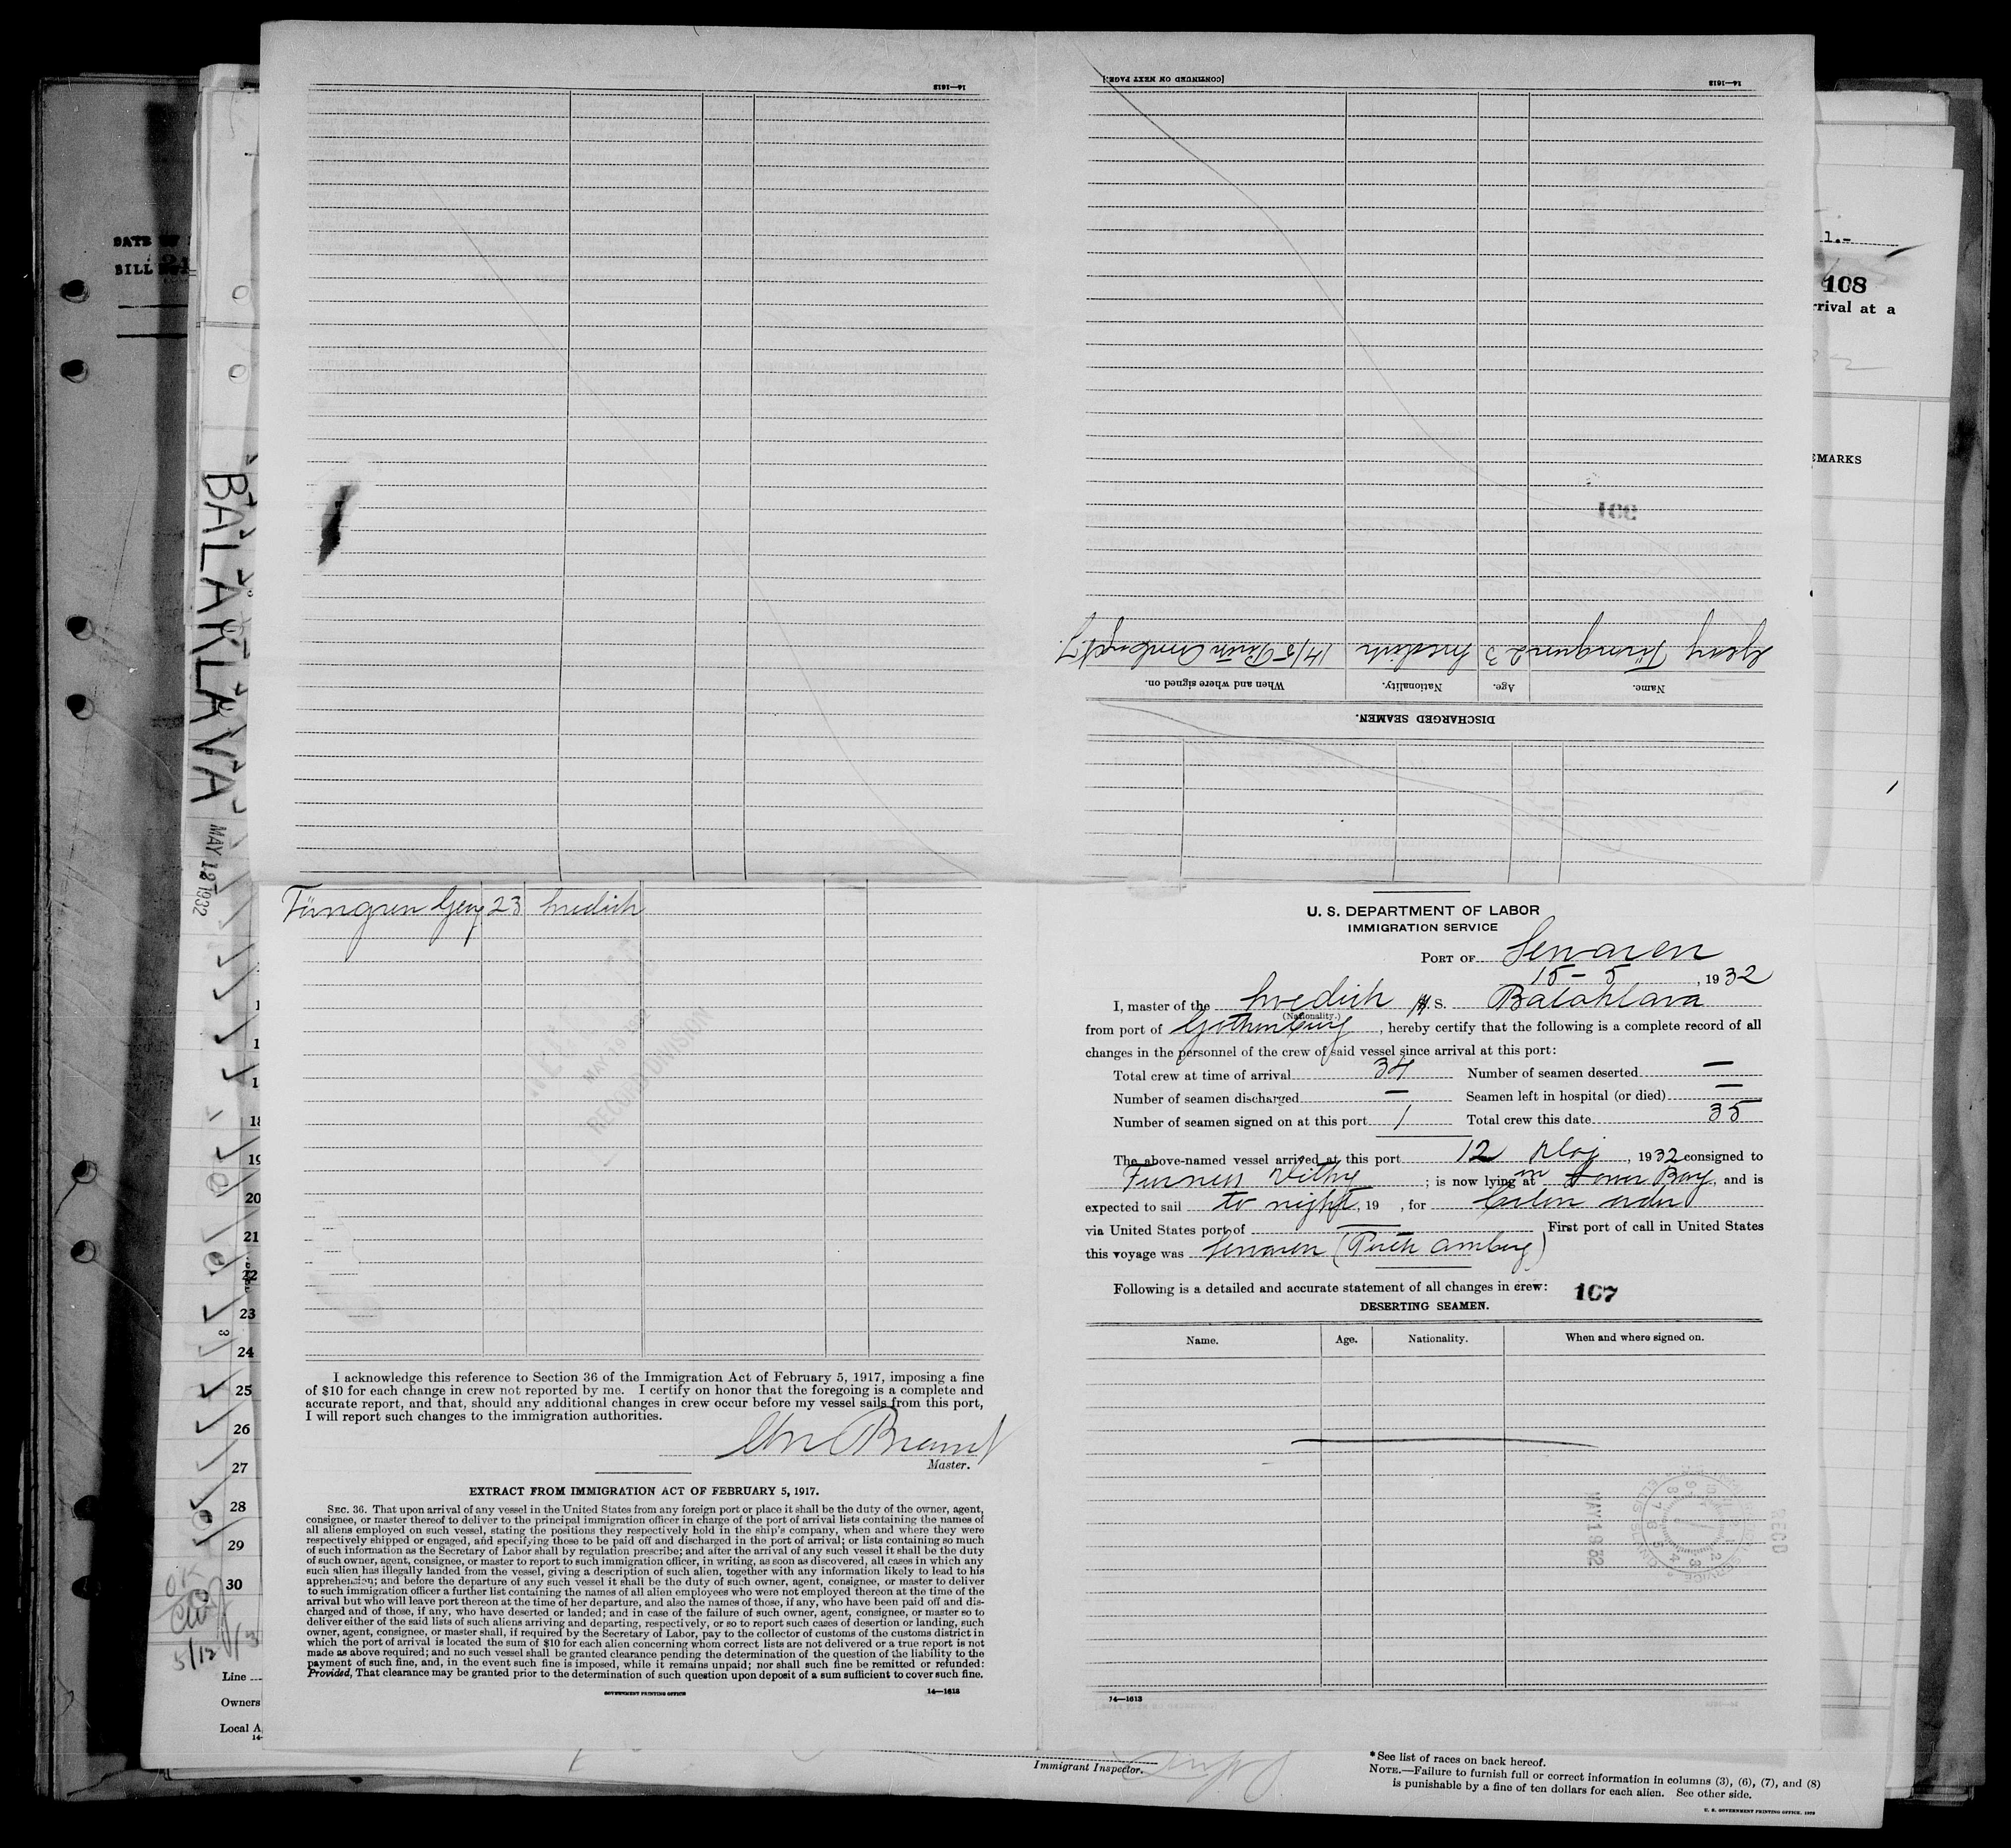 14—1613
[CONTINUED ON NEXT PAGE.]
14—1613
DATE OF
BILL
21
1.-
108
rrival at a
EMARKS
100
BALAKLAVA
MAY 12 1932
14/5 Perth Amboy
Swedish
23
Georg Törngren
When and where signed on.
Nationality.
Age.
Name.
DISCHARGED SEAMEN.
Törngren Georg 23 Swedish
RECORD DIVISION
18
19
20
21
22
23
24
25
26
27
28
29
30
OK
5/12
Line
Owners
Local A
14-
I acknowledge this reference to Section 36 of the Immigration Act of February 5, 1917, imposing a fine
of $10 for each change in crew not reported by me. I certify on honor that the foregoing is a complete and
accurate report, and that, should any additional changes in crew occur before my vessel sails from this port,
I will report such changes to the immigration authorities.
Master.
EXTRACT FROM IMMIGRATION ACT OF FEBRUARY 5, 1917.
SEC. 36. That upon arrival of any vessel in the United States from any foreign port or place it shall be the duty of the owner, agent,
consignee, or master thereof to deliver to the principal immigration officer in charge of the port of arrival lists containing the names of
all aliens employed on such vessel, stating the positions they respectively hold in the ship's company, when and where they were
respectively shipped or engaged, and specifying those to be paid off and discharged in the port of arrival; or lists containing so much
of such information as the Secretary of Labor shall by regulation prescribe; and after the arrival of any such vessel it shall be the duty
of such owner, agent, consignee, or master to report to such immigration officer, in writing, as soon as discovered, all cases in which any
such alien has illegally landed from the vessel, giving a description of such alien, together with any information likely to lead to his
apprehension; and before the departure of any such vessel it shall be the duty of such owner, agent, consignee, or master to deliver
to such immigration officer a further list containing the names of all alien employees who were not employed thereon at the time of the
arrival but who will leave port thereon at the time of her departure, and also the names of those, if any, who have been paid off and dis-
charged and of those, if any, who have deserted or landed; and in case of the failure of such owner, agent, consignee, or master so to
deliver either of the said lists of such aliens arriving and departing, respectively, or so to report such cases of desertion or landing, such
owner, agent, consignee, or master shall, if required by the Secretary of Labor, pay to the collector of customs of the customs district in
which the port of arrival is located the sum of $10 for each alien concerning whom correct lists are not delivered or a true report is not
made as above required; and no such vessel shall be granted clearance pending the determination of the question of the liability to the
payment of such fine, and, in the event such fine is imposed, while it remains unpaid; nor shall such fine be remitted or refunded:
Provided, That clearance may be granted prior to the determination of such question upon deposit of a sum sufficient to cover such fine.
GOVERNMENT PRINTING OFFICE
14—1613
U. S. DEPARTMENT OF LABOR
IMMIGRATION SERVICE
PORT OF Sewaren
15-5, 1932
I, master of the Swedish M.S. Balaklava
(Nationality.)
from port of Gothenburg, hereby certify that the following is a complete record of all
changes in the personnel of the crew of said vessel since arrival at this port:
Total crew at time of arrival 34 Number of seamen deserted —
Number of seamen discharged — Seamen left in hospital (or died) —
Number of seamen signed on at this port 1 Total crew this date 35
The above-named vessel arrived at this port 12 Maj, 1932 consigned to
Furness Withy; is now lying at in Lower Bay, and is
expected to sail to night, 19 , for Colon order
via United States port of — First port of call in United States
this voyage was Sewaren (Perth Amboy)
Following is a detailed and accurate statement of all changes in crew: 107
DESERTING SEAMEN.
Name. Age. Nationality. When and where signed on.
MAY 1932
REC'D
14—1613
Immigrant Inspector.
*See list of races on back hereof.
NOTE.—Failure to furnish full or correct information in columns (3), (6), (7), and (8)
is punishable by a fine of ten dollars for each alien. See other side.
U. S. GOVERNMENT PRINTING OFFICE